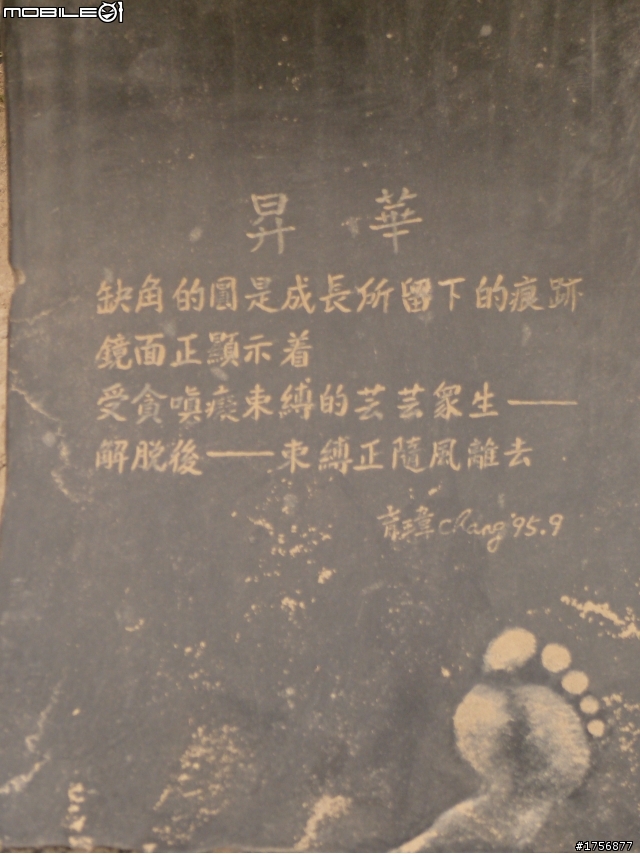 MOBILE01
昇 華
缺角的圓是成長所留下的痕跡
鏡面正顯示着
受貪嗔癡束縛的芸芸眾生——
解脫後——束縛正隨風離去
Chang '95.9
#1756877